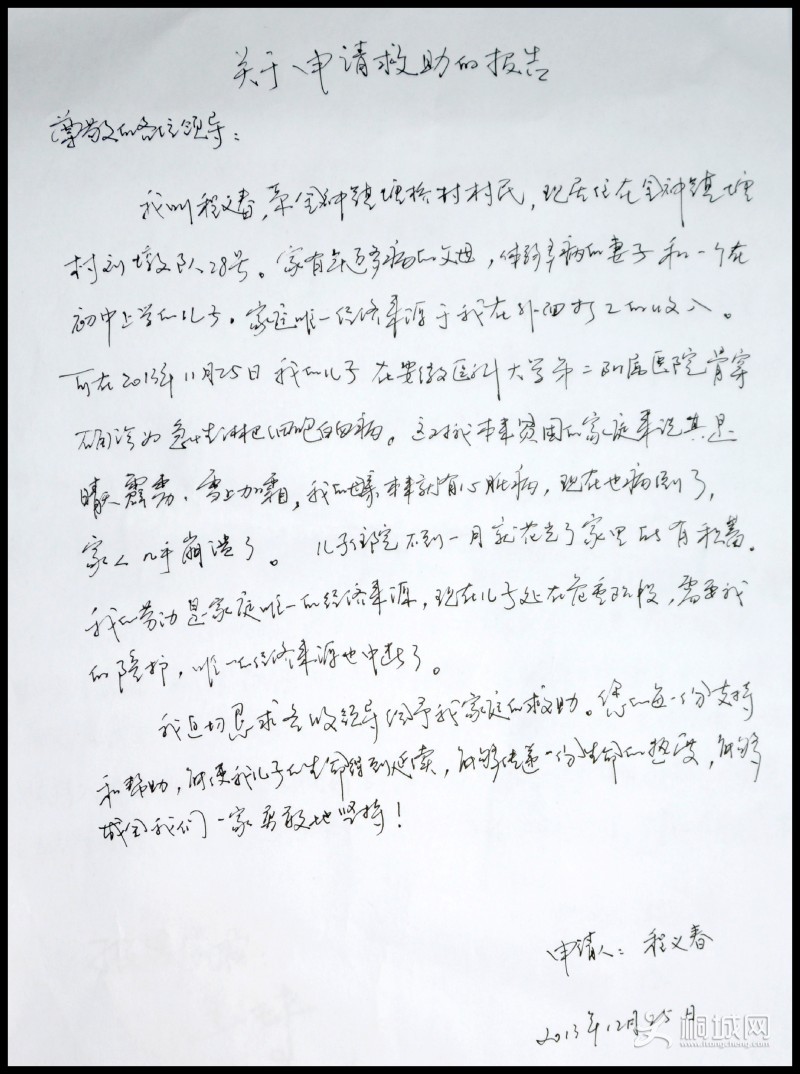 关于申请救助的报告
尊敬的各位领导：
我叫程义春，系金神镇塘桥村村民，现居住在金神镇塘
村刘墩队28号。家有年迈多病的父母，体弱多病的妻子和一个在
初中上学的儿子。家庭唯一经济来源于我在外面打工的收入。
可在2013年11月25日我的儿子在安徽医科大学第二附属医院骨穿
确诊为急性淋巴细胞白血病。这对我本来贫困的家庭来说真是
晴天霹雳、雪上加霜，我的母亲本来就有心脏病，现在也病倒了，
家人几乎崩溃了。儿子住院不到一月就花光了家里所有积蓄。
我的劳动是家庭唯一的经济来源，现在儿子处在危重阶段，需要我
的陪护，唯一的经济来源也中断了。
我迫切恳求各级领导给予我家庭的救助。您的每一份支持
和帮助，能使我儿子的生命得到延续，能够传递一份生命的热度，能够
成全我们一家勇敢地坚持！
申请人：程义春
2013年12月25日
桐城网
www.itongcheng.com